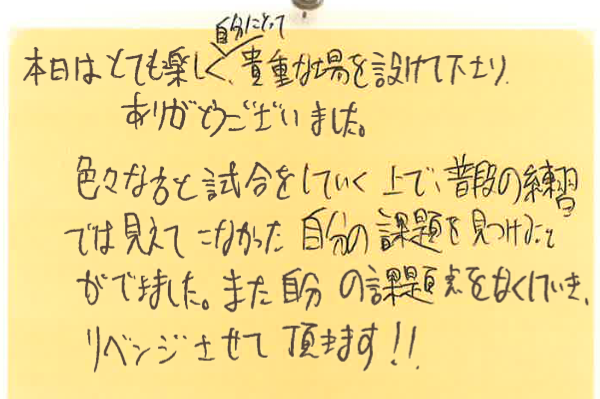 自分にとって
本日はとても楽しく、貴重な場を設けて下さり
ありがとうございました。
色々な方と試合をしていく上で、普段の練習
では見えてこなかった自分の課題を見つけること
ができました。また自分の課題点をなくしていき、
リベンジさせて頂きます!!